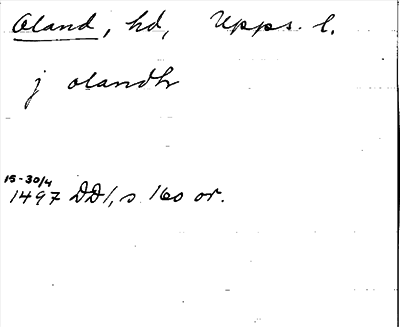 Oland, hd, Upps. l.
j olandh
15-30/4
1497 DD1, s. 160 or.